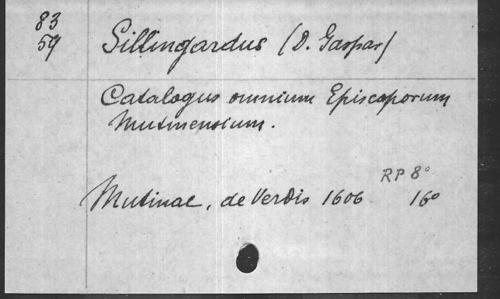 83
59
Sillingardus (D. Gaspar)
Catalogus omnium Episcoporum
Mutinensium.
RP 8°
Mutinae, de Verdis 1606 16°